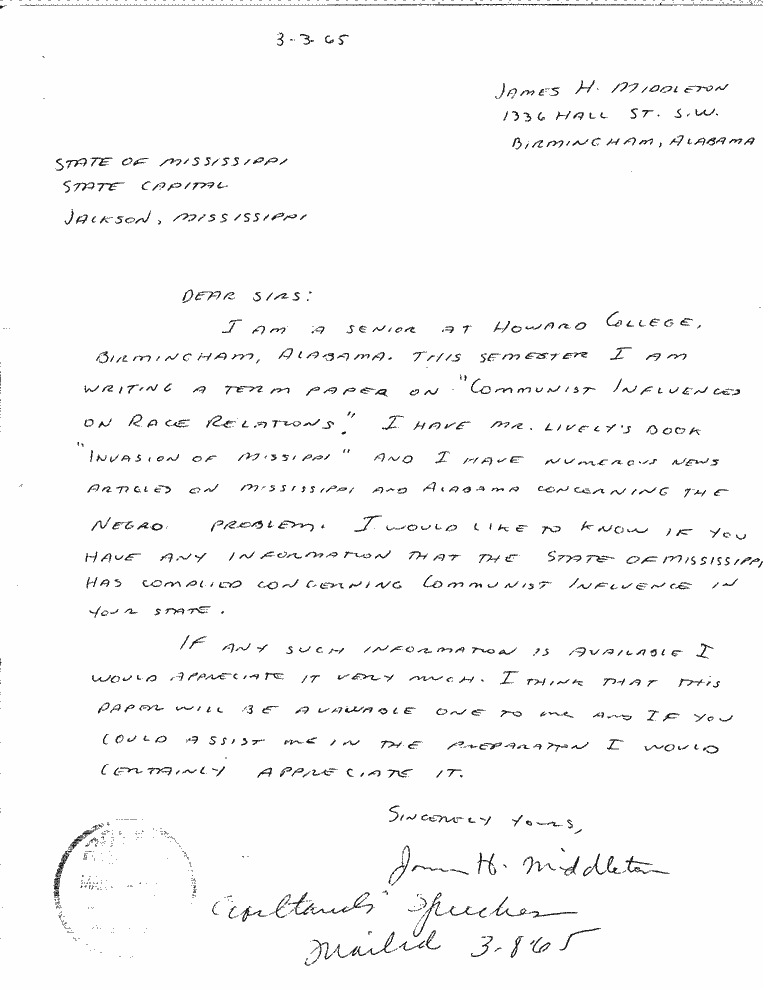 3-3-65
JAMES H. MIDDLETON
1336 HALL ST. S.W.
BIRMINGHAM, ALABAMA
STATE OF MISSISSIPPI
STATE CAPITAL
JACKSON, MISSISSIPPI
DEAR SIRS:
I AM A SENIOR AT HOWARD COLLEGE,
BIRMINGHAM, ALABAMA. THIS SEMESTER I AM
WRITING A TERM PAPER ON "COMMUNIST INFLUENCES
ON RACE RELATIONS". I HAVE MR. LIVELY'S BOOK
"INVASION OF MISSISSIPPI" AND I HAVE NUMEROUS NEWS
ARTICLES ON MISSISSIPPI AND ALABAMA CONCERNING THE
NEGRO PROBLEM. I WOULD LIKE TO KNOW IF YOU
HAVE ANY INFORMATION THAT THE STATE OF MISSISSIPPI
HAS COMPLIED CONCERNING COMMUNIST INFLUENCE IN
YOUR STATE.
IF ANY SUCH INFORMATION IS AVAILABLE I
WOULD APPRECIATE IT VERY MUCH. I THINK THAT THIS
PAPER WILL BE A VALUABLE ONE TO ME AND IF YOU
COULD ASSIST ME IN THE PREPARATION I WOULD
CERTAINLY APPRECIATE IT.
SINCERELY YOURS,
James H. Middleton
Speeches
Mailed 3-8-65